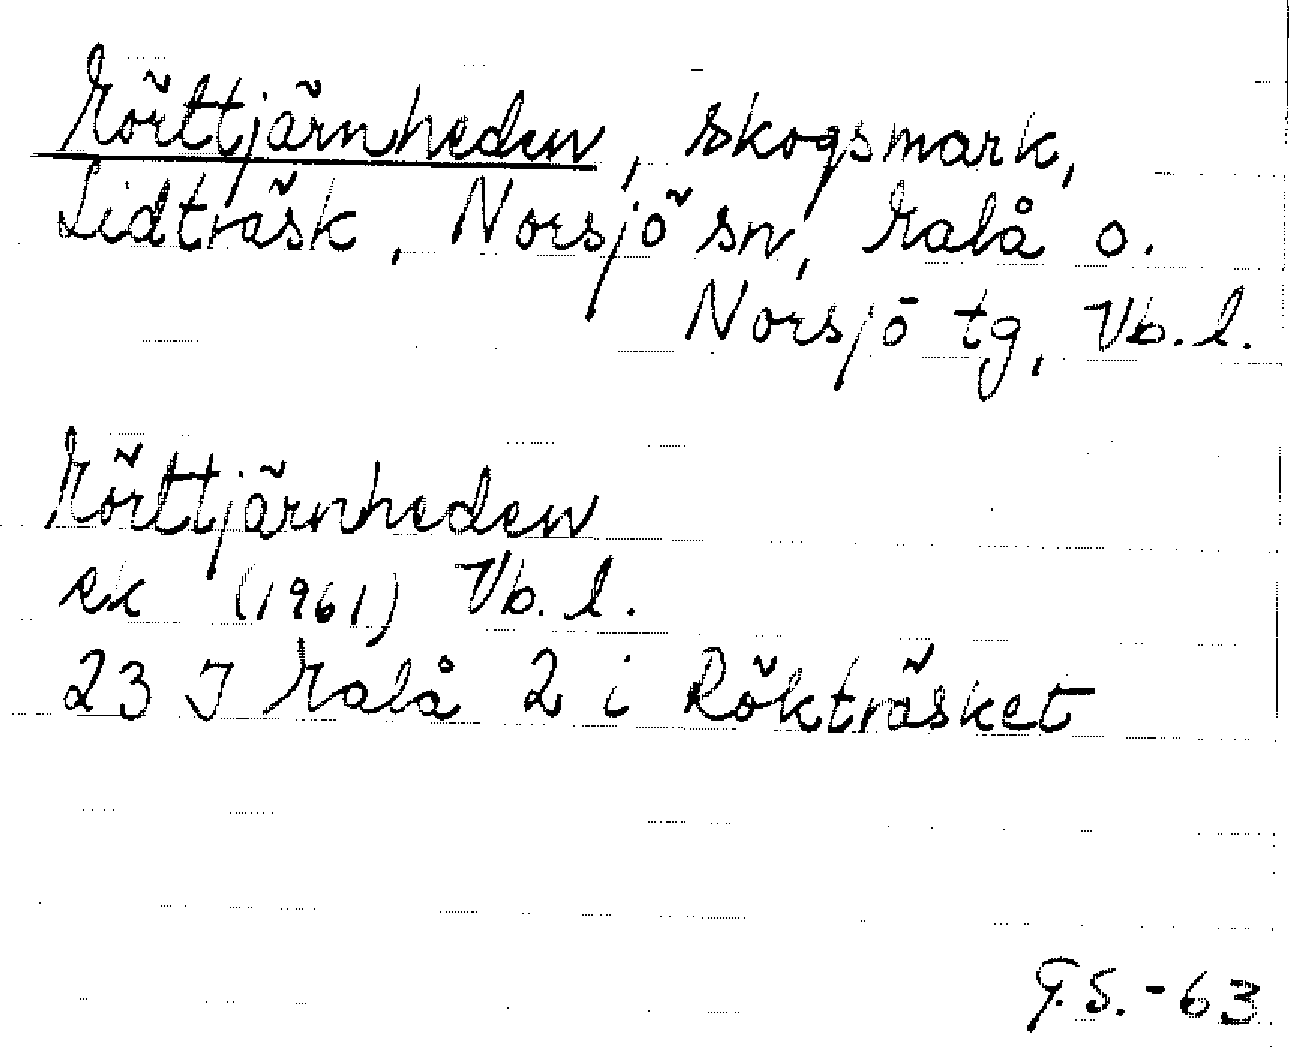 Mörttjärnheden, skogsmark,
Lidträsk, Norsjö sn, Malå o.
Norsjö tg, Vb. l.
Mörttjärnheden
ek (1961) Vb. l.
23 J Malå 2 i Rökträsket
G.S. - 63